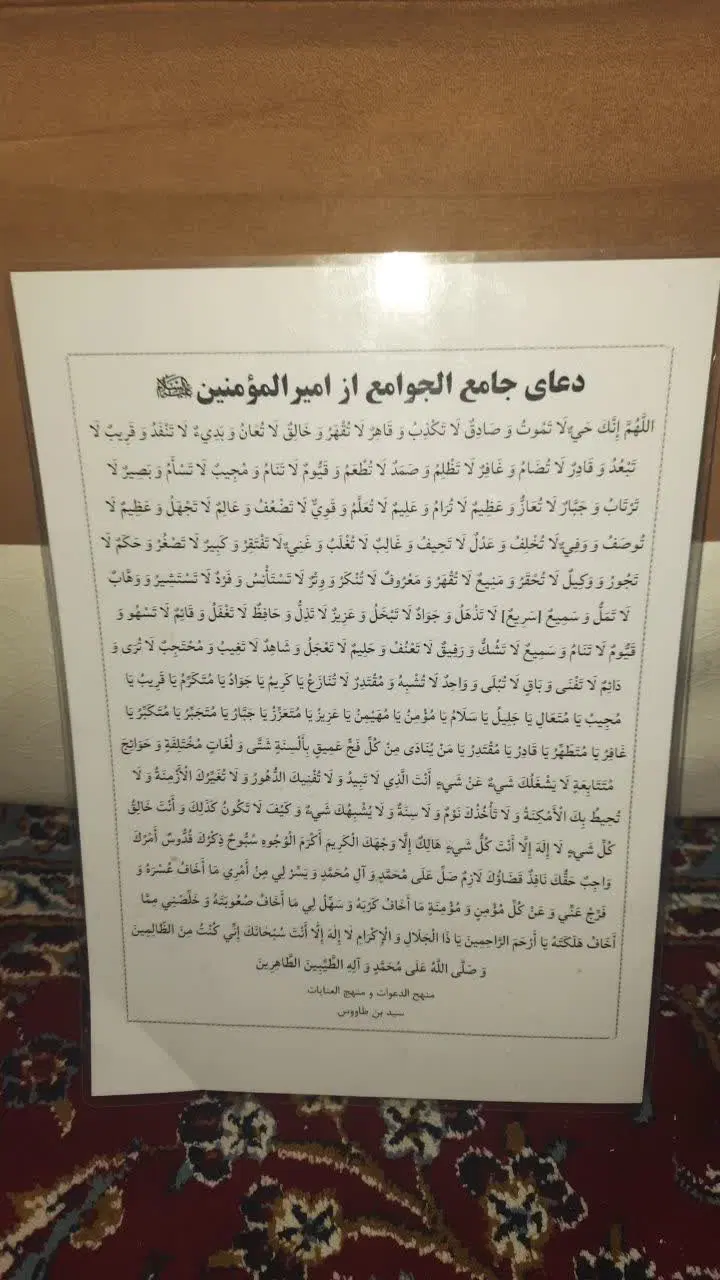 دعای جامع الجوامع از امیرالمؤمنین علیه‌السلام
اللَّهُمَّ إِنَّكَ حَيٌّ لَا تَمُوتُ وَ صَادِقٌ لَا تَكْذِبُ وَ قَاهِرٌ لَا تُقْهَرُ وَ خَالِقٌ لَا تُعَانُ وَ بَدِيءٌ لَا تَنْفَدُ وَ قَرِيبٌ لَا
تَبْعُدُ وَ قَادِرٌ لَا تُضَامُ وَ غَافِرٌ لَا تَظْلِمُ وَ صَمَدٌ لَا تُطْعَمُ وَ قَيُّومٌ لَا تَنَامُ وَ مُجِيبٌ لَا تَسْأَمُ وَ بَصِيرٌ لَا
تَرْتَابُ وَ جَبَّارٌ لَا تُعَازُّ وَ عَظِيمٌ لَا تُرَامُ وَ عَلِيمٌ لَا تُعَلَّمُ وَ قَوِيٌّ لَا تَضْعُفُ وَ عَالِمٌ لَا تَجْهَلُ وَ عَظِيمٌ لَا
تُوصَفُ وَ وَفِيٌّ لَا تُخْلِفُ وَ عَدْلٌ لَا تَحِيفُ وَ غَالِبٌ لَا تُغْلَبُ وَ غَنِيٌّ لَا تَفْتَقِرُ وَ كَبِيرٌ لَا تَصْغُرُ وَ حَكَمٌ لَا
تَجُورُ وَ وَكِيلٌ لَا تُحْقَرُ وَ مَنِيعٌ لَا تُقْهَرُ وَ مَعْرُوفٌ لَا تُنْكَرُ وَ وِتْرٌ لَا تَسْتَأْنِسُ وَ فَرْدٌ لَا تَسْتَشِيرُ وَ وَهَّابٌ
لَا تَمَلُّ وَ سَمِيعٌ [سَرِيعٌ] لَا تَذْهَلُ وَ جَوَادٌ لَا تَبْخَلُ وَ عَزِيزٌ لَا تَذِلُّ وَ حَافِظٌ لَا تَغْفَلُ وَ قَائِمٌ لَا تَسْهُو وَ
قَيُّومٌ لَا تَنَامُ وَ سَمِيعٌ لَا تَشُكُّ وَ رَفِيقٌ لَا تَعْنُفُ وَ حَلِيمٌ لَا تَعْجَلُ وَ شَاهِدٌ لَا تَغِيبُ وَ مُحْتَجِبٌ لَا تُرَى وَ
دَائِمٌ لَا تَفْنَى وَ بَاقٍ لَا تُبْلَى وَ وَاحِدٌ لَا تُشْبِهُ وَ مُقْتَدِرٌ لَا تُنَازَعُ يَا كَرِيمُ يَا جَوَادُ يَا مُتَكَرِّمُ يَا قَرِيبُ يَا
مُجِيبُ يَا مُتَعَالِ يَا جَلِيلُ يَا سَلَامُ يَا مُؤْمِنُ يَا مُهَيْمِنُ يَا عَزِيزُ يَا مُتَعَزِّزُ يَا جَبَّارُ يَا مُتَجَبِّرُ يَا مُتَكَبِّرُ يَا
غَافِرُ يَا مُتَطَهِّرُ يَا قَادِرُ يَا مُقْتَدِرُ يَا مَنْ يُنَادَى مِنْ كُلِّ فَجٍّ عَمِيقٍ بِأَلْسِنَةٍ شَتَّى وَ لُغَاتٍ مُخْتَلِفَةٍ وَ حَوَائِجَ
مُتَتَابِعَةٍ لَا يَشْغَلُكَ شَيْءٌ عَنْ شَيْءٍ أَنْتَ الَّذِي لَا تَبِيدُ وَ لَا تُفْنِيكَ الدُّهُورُ وَ لَا تُغَيِّرُكَ الْأَزْمِنَةُ وَ لَا
تُحِيطُ بِكَ الْأَمْكِنَةُ وَ لَا تَأْخُذُكَ نَوْمٌ وَ لَا سِنَةٌ وَ لَا يُشْبِهُكَ شَيْءٌ وَ كَيْفَ لَا تَكُونُ كَذَلِكَ وَ أَنْتَ خَالِقُ
كُلِّ شَيْءٍ لَا إِلَهَ إِلَّا أَنْتَ كُلُّ شَيْءٍ هَالِكٌ إِلَّا وَجْهَكَ الْكَرِيمَ أَكْرَمَ الْوُجُوهِ سُبُّوحٌ ذِكْرُكَ قُدُّوسٌ أَمْرُكَ
وَاجِبٌ حَقُّكَ نَافِذٌ قَضَاؤُكَ لَازِمٌ صَلِّ عَلَى مُحَمَّدٍ وَ آلِ مُحَمَّدٍ وَ يَسِّرْ لِي مِنْ أَمْرِي مَا أَخَافُ عُسْرَهُ وَ
فَرِّجْ عَنِّي وَ عَنْ كُلِّ مُؤْمِنٍ وَ مُؤْمِنَةٍ مَا أَخَافُ كَرْبَهُ وَ سَهِّلْ لِي مَا أَخَافُ صُعُوبَتَهُ وَ خَلِّصْنِي مِمَّا
أَخَافُ هَلَكَتَهُ يَا أَرْحَمَ الرَّاحِمِينَ يَا ذَا الْجَلَالِ وَ الْإِكْرَامِ لَا إِلَهَ إِلَّا أَنْتَ سُبْحَانَكَ إِنِّي كُنْتُ مِنَ الظَّالِمِينَ
وَ صَلَّى اللَّهُ عَلَى مُحَمَّدٍ وَ آلِهِ الطَّيِّبِينَ الطَّاهِرِينَ
منهج الدعوات و منهج العنایات
سید بن طاووس